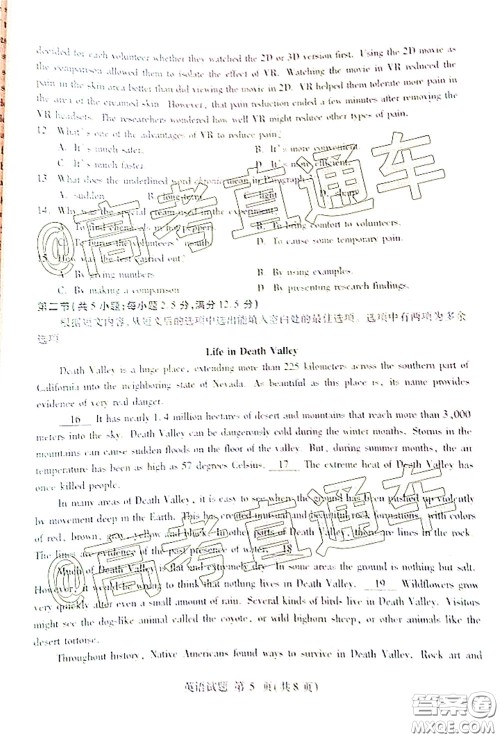 decided for each volunteer whether they watched the 2D or 3D version first. Using the 2D movie as
the comparison allowed them to isolate the effect of VR. Watching the movie in VR reduced the
pain in the skin area better than did viewing the movie in 2D. VR helped them tolerate more pain in
the area of the creamed skin. However, that pain reduction ended a few minutes after removing the
VR headsets. The researchers wondered how well VR might reduce other types of pain.
12. What's one of the advantages of VR to reduce pain?
A. It's much safer. B. It's more convenient.
C. It's much faster. D. It's more efficient.
13. What does the underlined word chronic mean in Paragraph
A. sudden B. long-term C.
14. Why was the special cream used in the experiment?
A. To find chemicals in hot peppers. B. To bring comfort to volunteers.
C. To burn the volunteers' mouth. D. To cause some temporary pain.
15. How was the test carried out?
A. By giving numbers. B. By giving examples.
C. By making a comparison. D. By presenting research findings.
第二节(共5小题;每小题2.5分,满分12.5分)
根据短文内容,从短文后的选项中选出能填入空白处的最佳选项。选项中有两项为多余
选项
Life in Death Valley
Death Valley is a huge place, extending more than 225 kilometers across the southern part of
California into the neighboring state of Nevada. As beautiful as this place is, its name provides
evidence of very real danger.
16 It has nearly 1.4 million hectares of desert and mountains that reach more than 3,000
meters into the sky. Death Valley can be dangerously cold during the winter months. Storms in the
mountains can cause sudden floods on the floor of the valley. But, during summer months, the air
temperature has been as high as 57 degrees Celsius. 17 The extreme heat of Death Valley has
once killed people.
In many areas of Death Valley, it is easy to see where the ground has been pushed up violently
by movement deep in the Earth. This has created unusual and beautiful rock formations, with colors
of red, brown, gray, yellow and black. In other parts of Death Valley, there are lines in the rock.
The lines are evidence of the past presence of water. 18
Much of Death Valley is flat and extremely dry. In some areas the ground is nothing but salt.
However, it would be wrong to think that nothing lives in Death Valley. 19 Wildflowers grow
very quickly after even a small amount of rain. Several kinds of birds live in Death Valley. Visitors
might see the dog-like animal called the coyote, or wild bighorn sheep, or other animals like the
desert tortoise.
Throughout history, Native Americans found ways to survive in Death Valley. Rock art and
英语试题 第 5 页(共 8 页)
@高考直通车
@高考直通车
答案圈
MXQE.COM